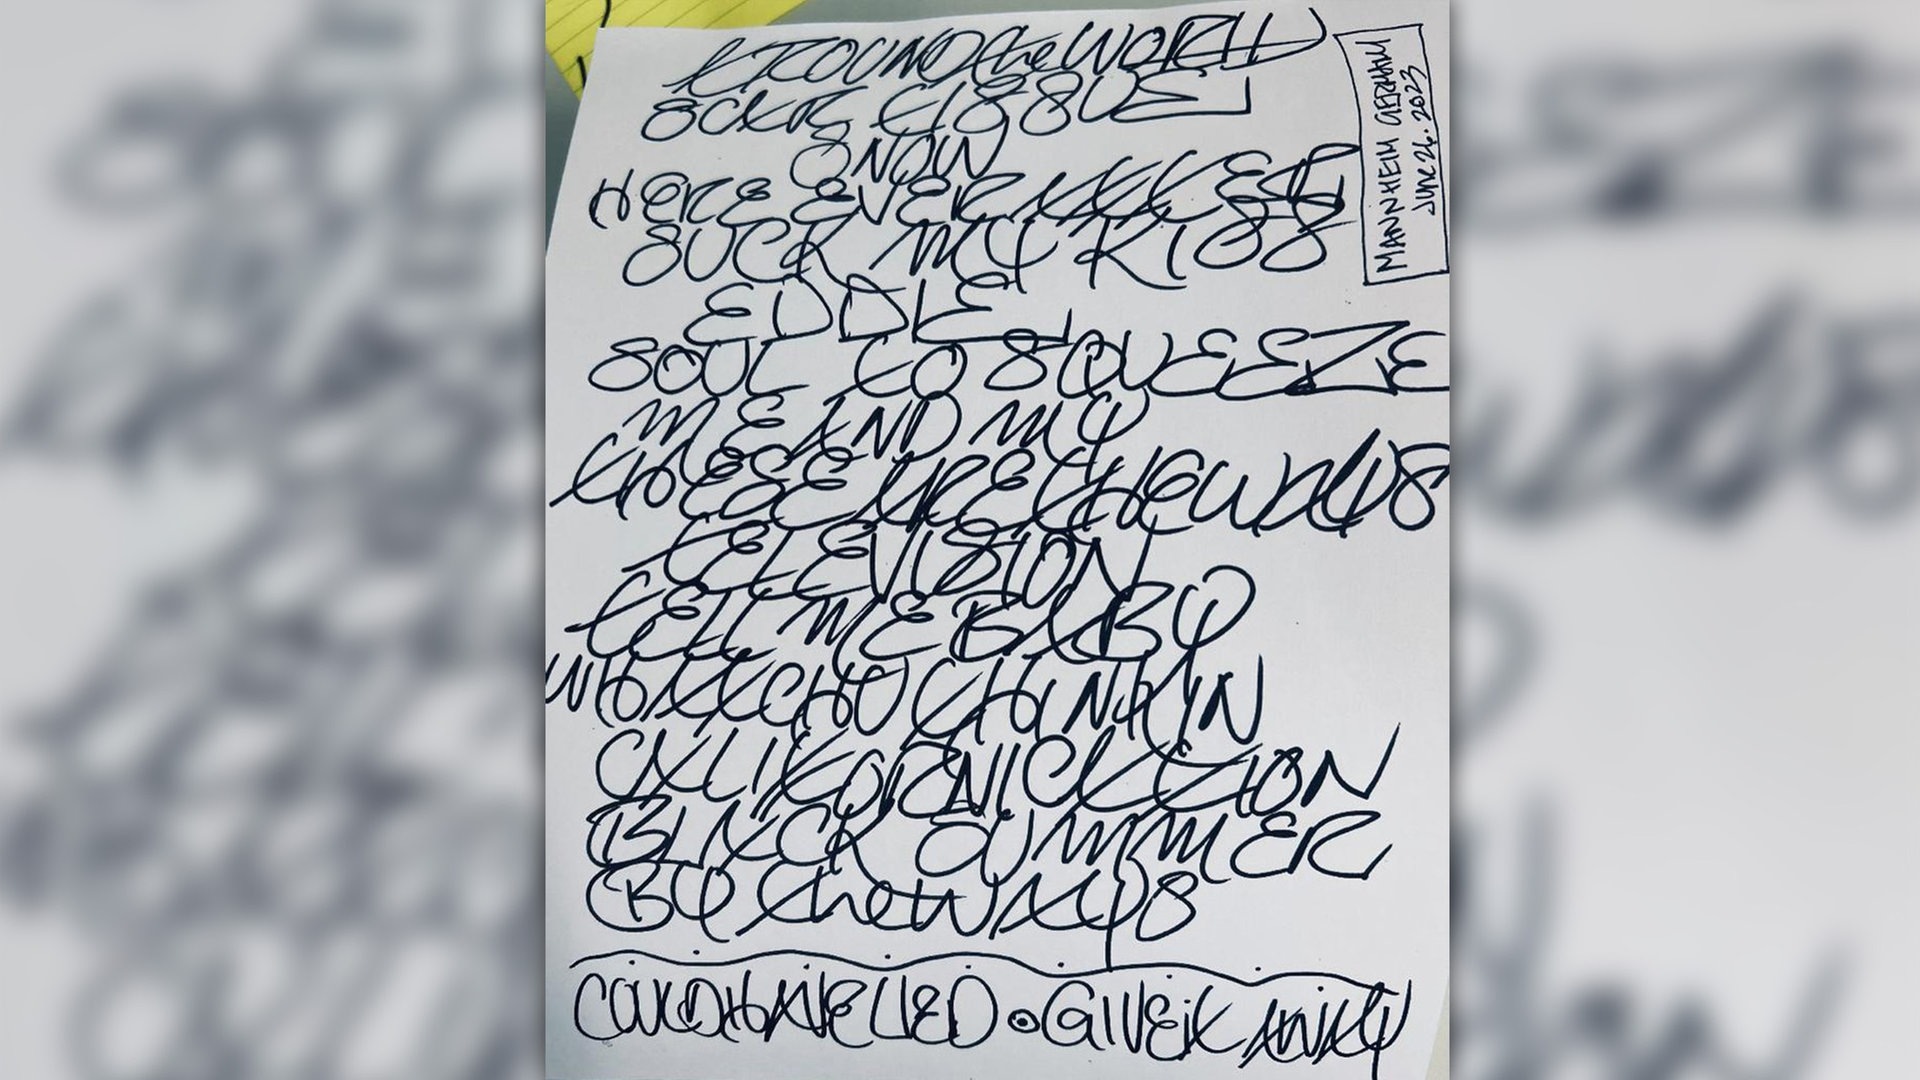 AROUND the WORLD
SCAR TISSUE
SNOW
HERE EVER AFTER
SUCK MY KISS
EDDIE
SOUL TO SQUEEZE
ME AND MY
THESE ARE THE WAYS
TELEVISION
TELL ME BABY
WHATCHU THINKIN
CALIFORNICATION
BLACK SUMMER
BY the WAY S
COULD HAVE LIED • GIVE it AWAY
MANNHEIM GERMANY
JUNE 26. 2023